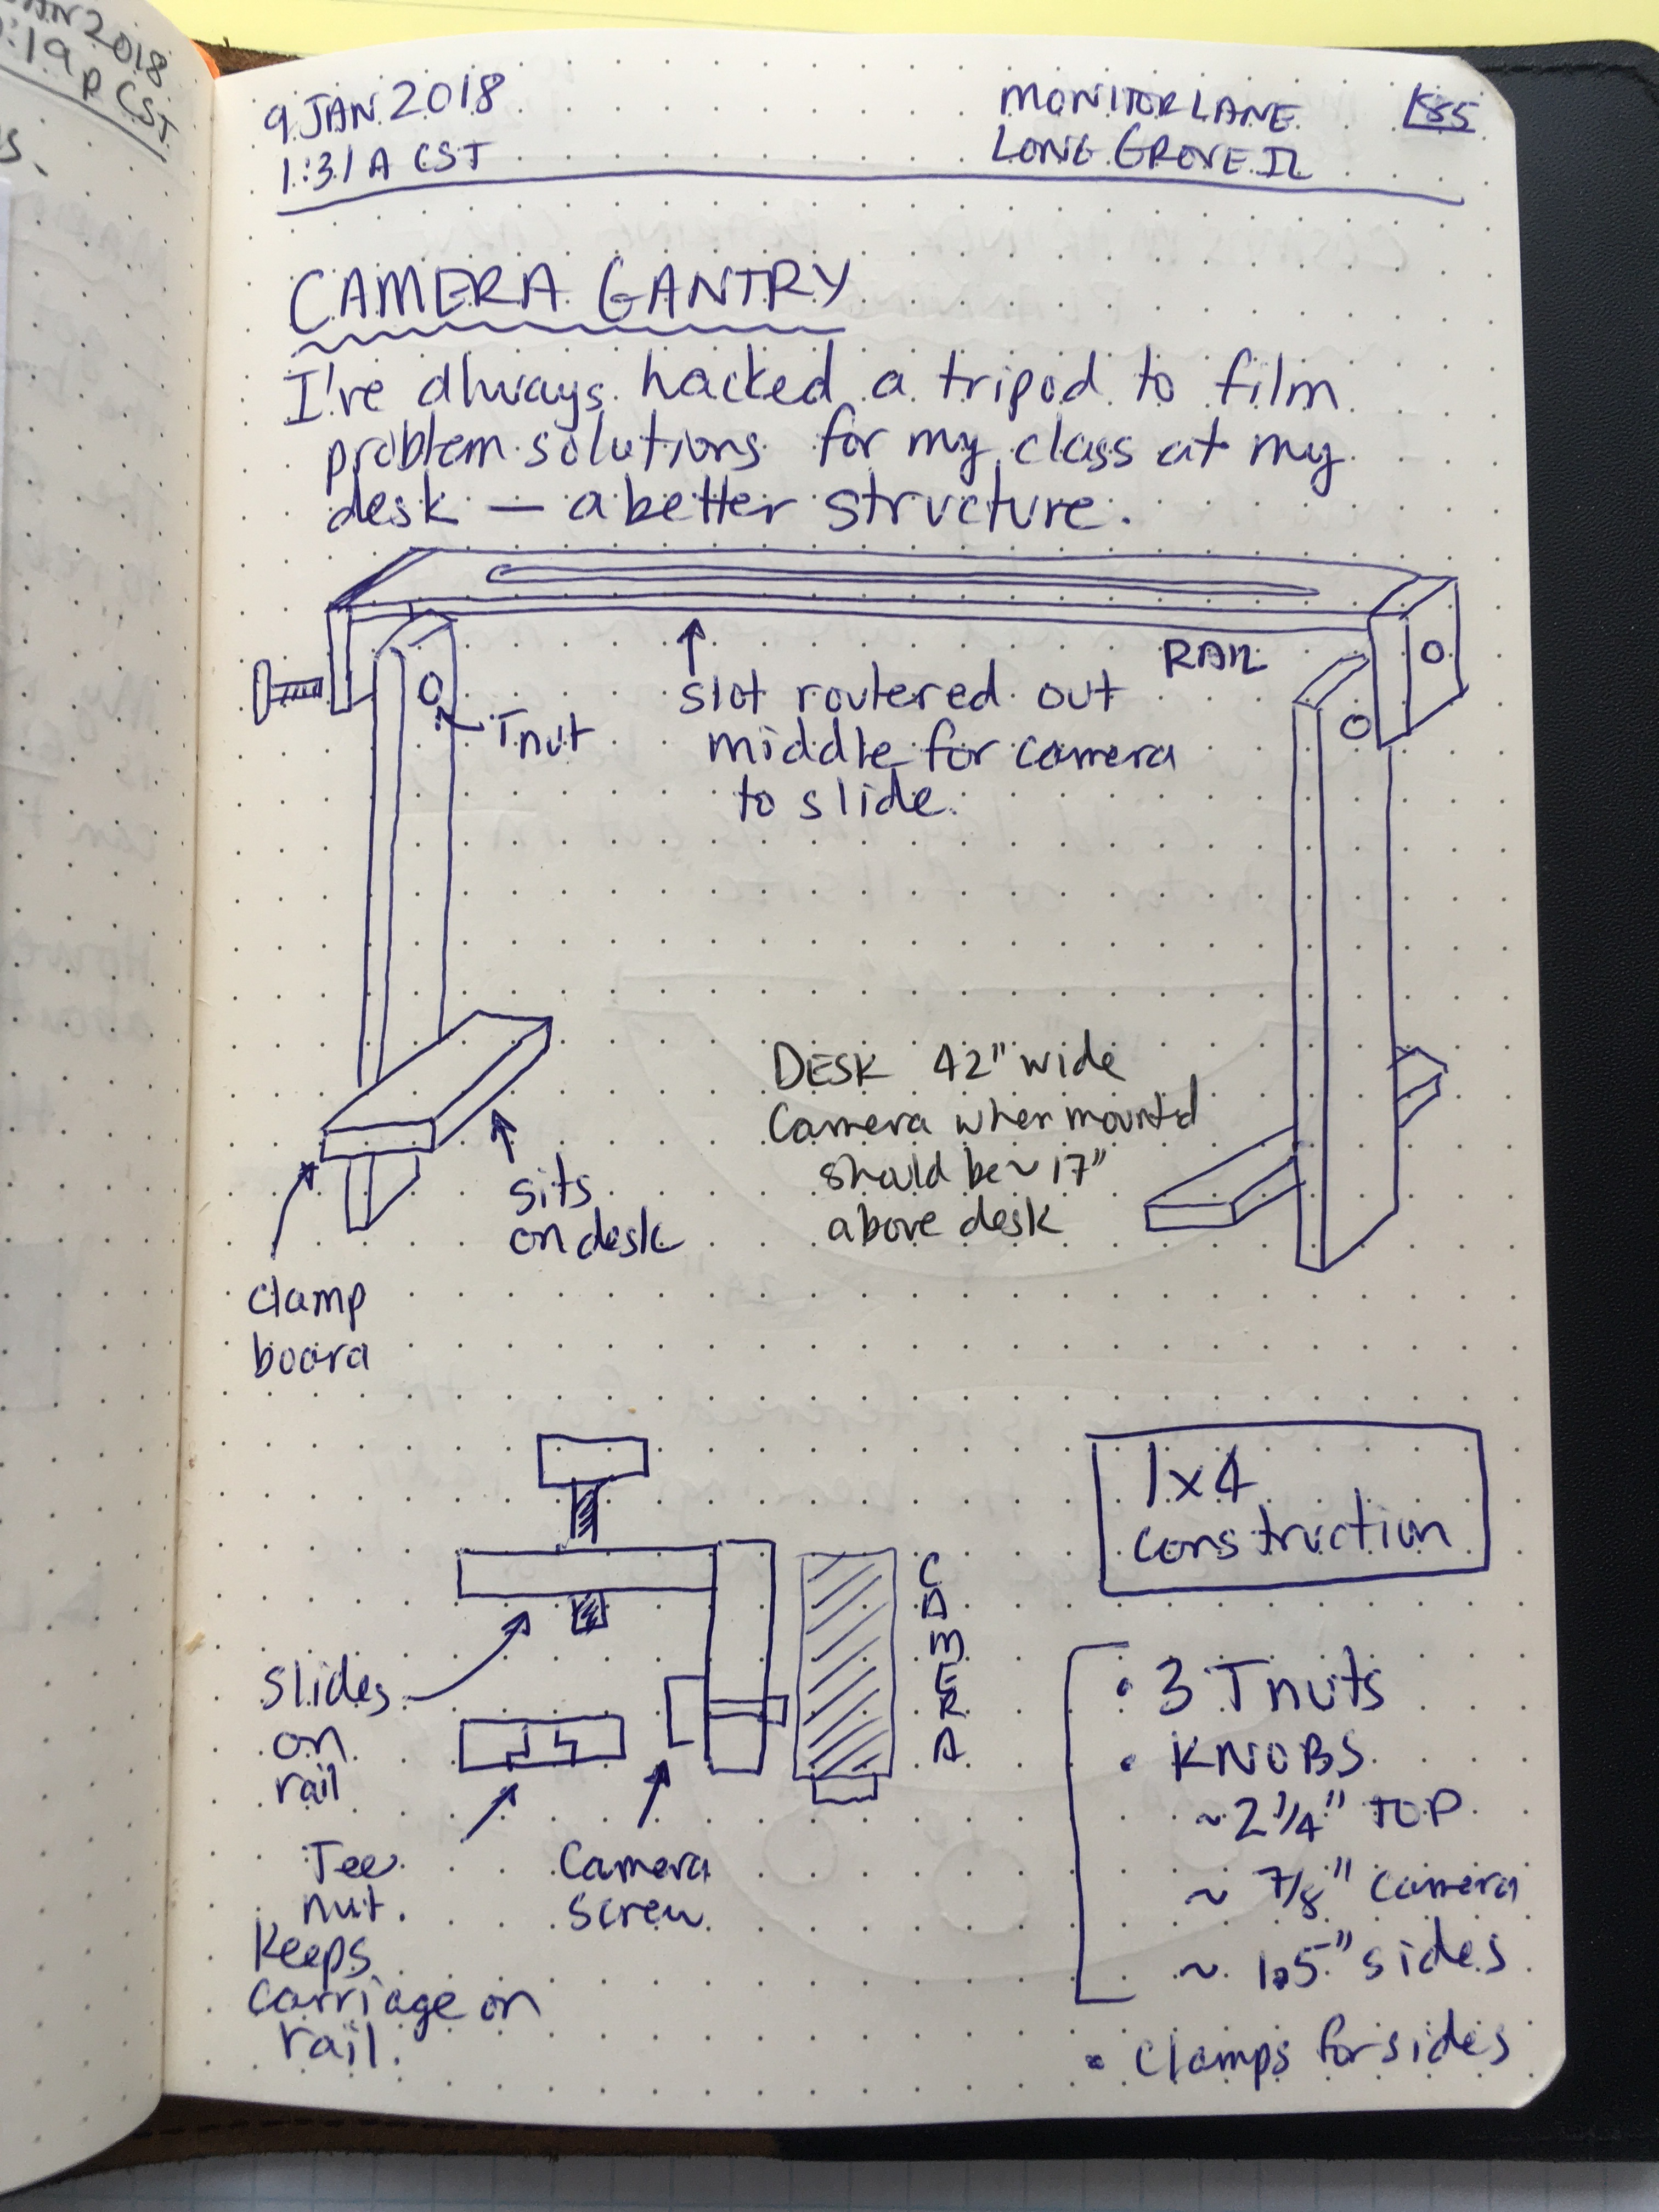 AN 2018
:19 P CST
s.
9 JAN 2018
1:31 A CST
MONITOR LANE
LONG GROVE IL
CAMERA GANTRY
I've always hacked a tripod to film
problem solutions for my class at my
desk — a better structure.
RAIL
Tnut
slot routered out
middle for camera
to slide.
DESK 42" wide
Camera when mounted
should be ~ 17"
above desk
sits
on desk
clamp
board
1x4
construction
CAMERA
slides
on
rail
Tee
nut.
Keeps
carriage on
rail.
Camera
screw
• 3 Tnuts
• KNOBS
~ 2 1/4" TOP
~ 7/8" camera
~ 1.5" sides
• clamps for sides